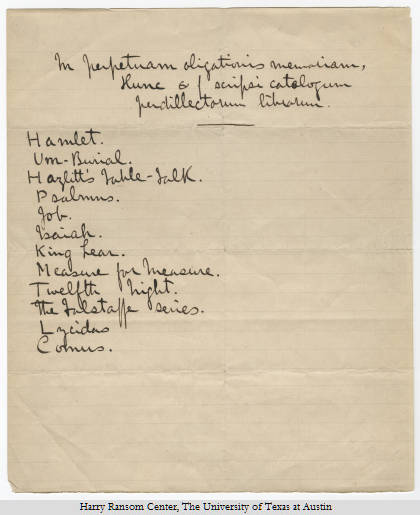 In perpetuam oligationis memoriam,
Hunc scripsi catalogum
perdillectorum librorum.
Hamlet.
Urn-Burial.
Hazlitt's Table-Talk.
Psalmns.
Job.
Isaiah.
King Lear.
Measure for Measure.
Twelfth Night.
The Falstaffe series.
Lycidas
Comus.
Harry Ransom Center, The University of Texas at Austin